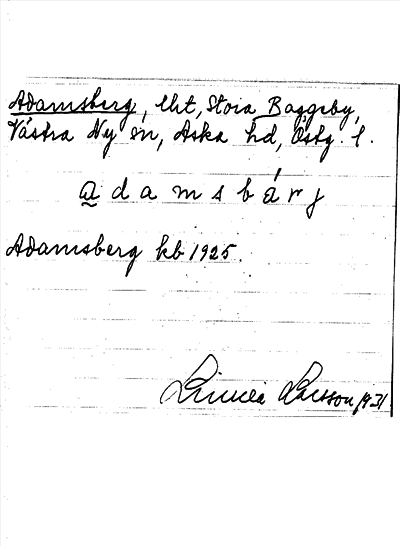 Adamsberg, lht, Stora Baggeby,
Västra Ny sn, Aska hd, Östg. l.
a d a m s b á r j
Adamsberg kb 1925.
Linnea Larsson 1931